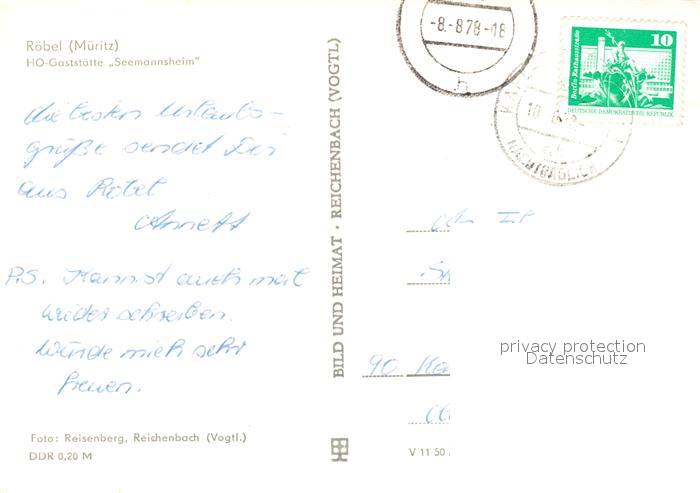 Röbel (Müritz)
HO-Gaststätte „Seemannsheim"
die besten Urlaubs-
grüße sendet Dir
aus Röbel
Annett
P.S. Kannst auch mal
wieder schreiben.
Würde mich sehr
freuen.
Foto: Reisenberg, Reichenbach (Vogtl.)
DDR 0,20 M
BILD UND HEIMAT · REICHENBACH (VOGTL)
-8.-8.78-18
b
10
Berlin, Rathausstraße
DEUTSCHE DEMOKRATISCHE REPUBLIK
NACHTRÄGLICH
An
90
V 11 50
privacy protection
Datenschutz